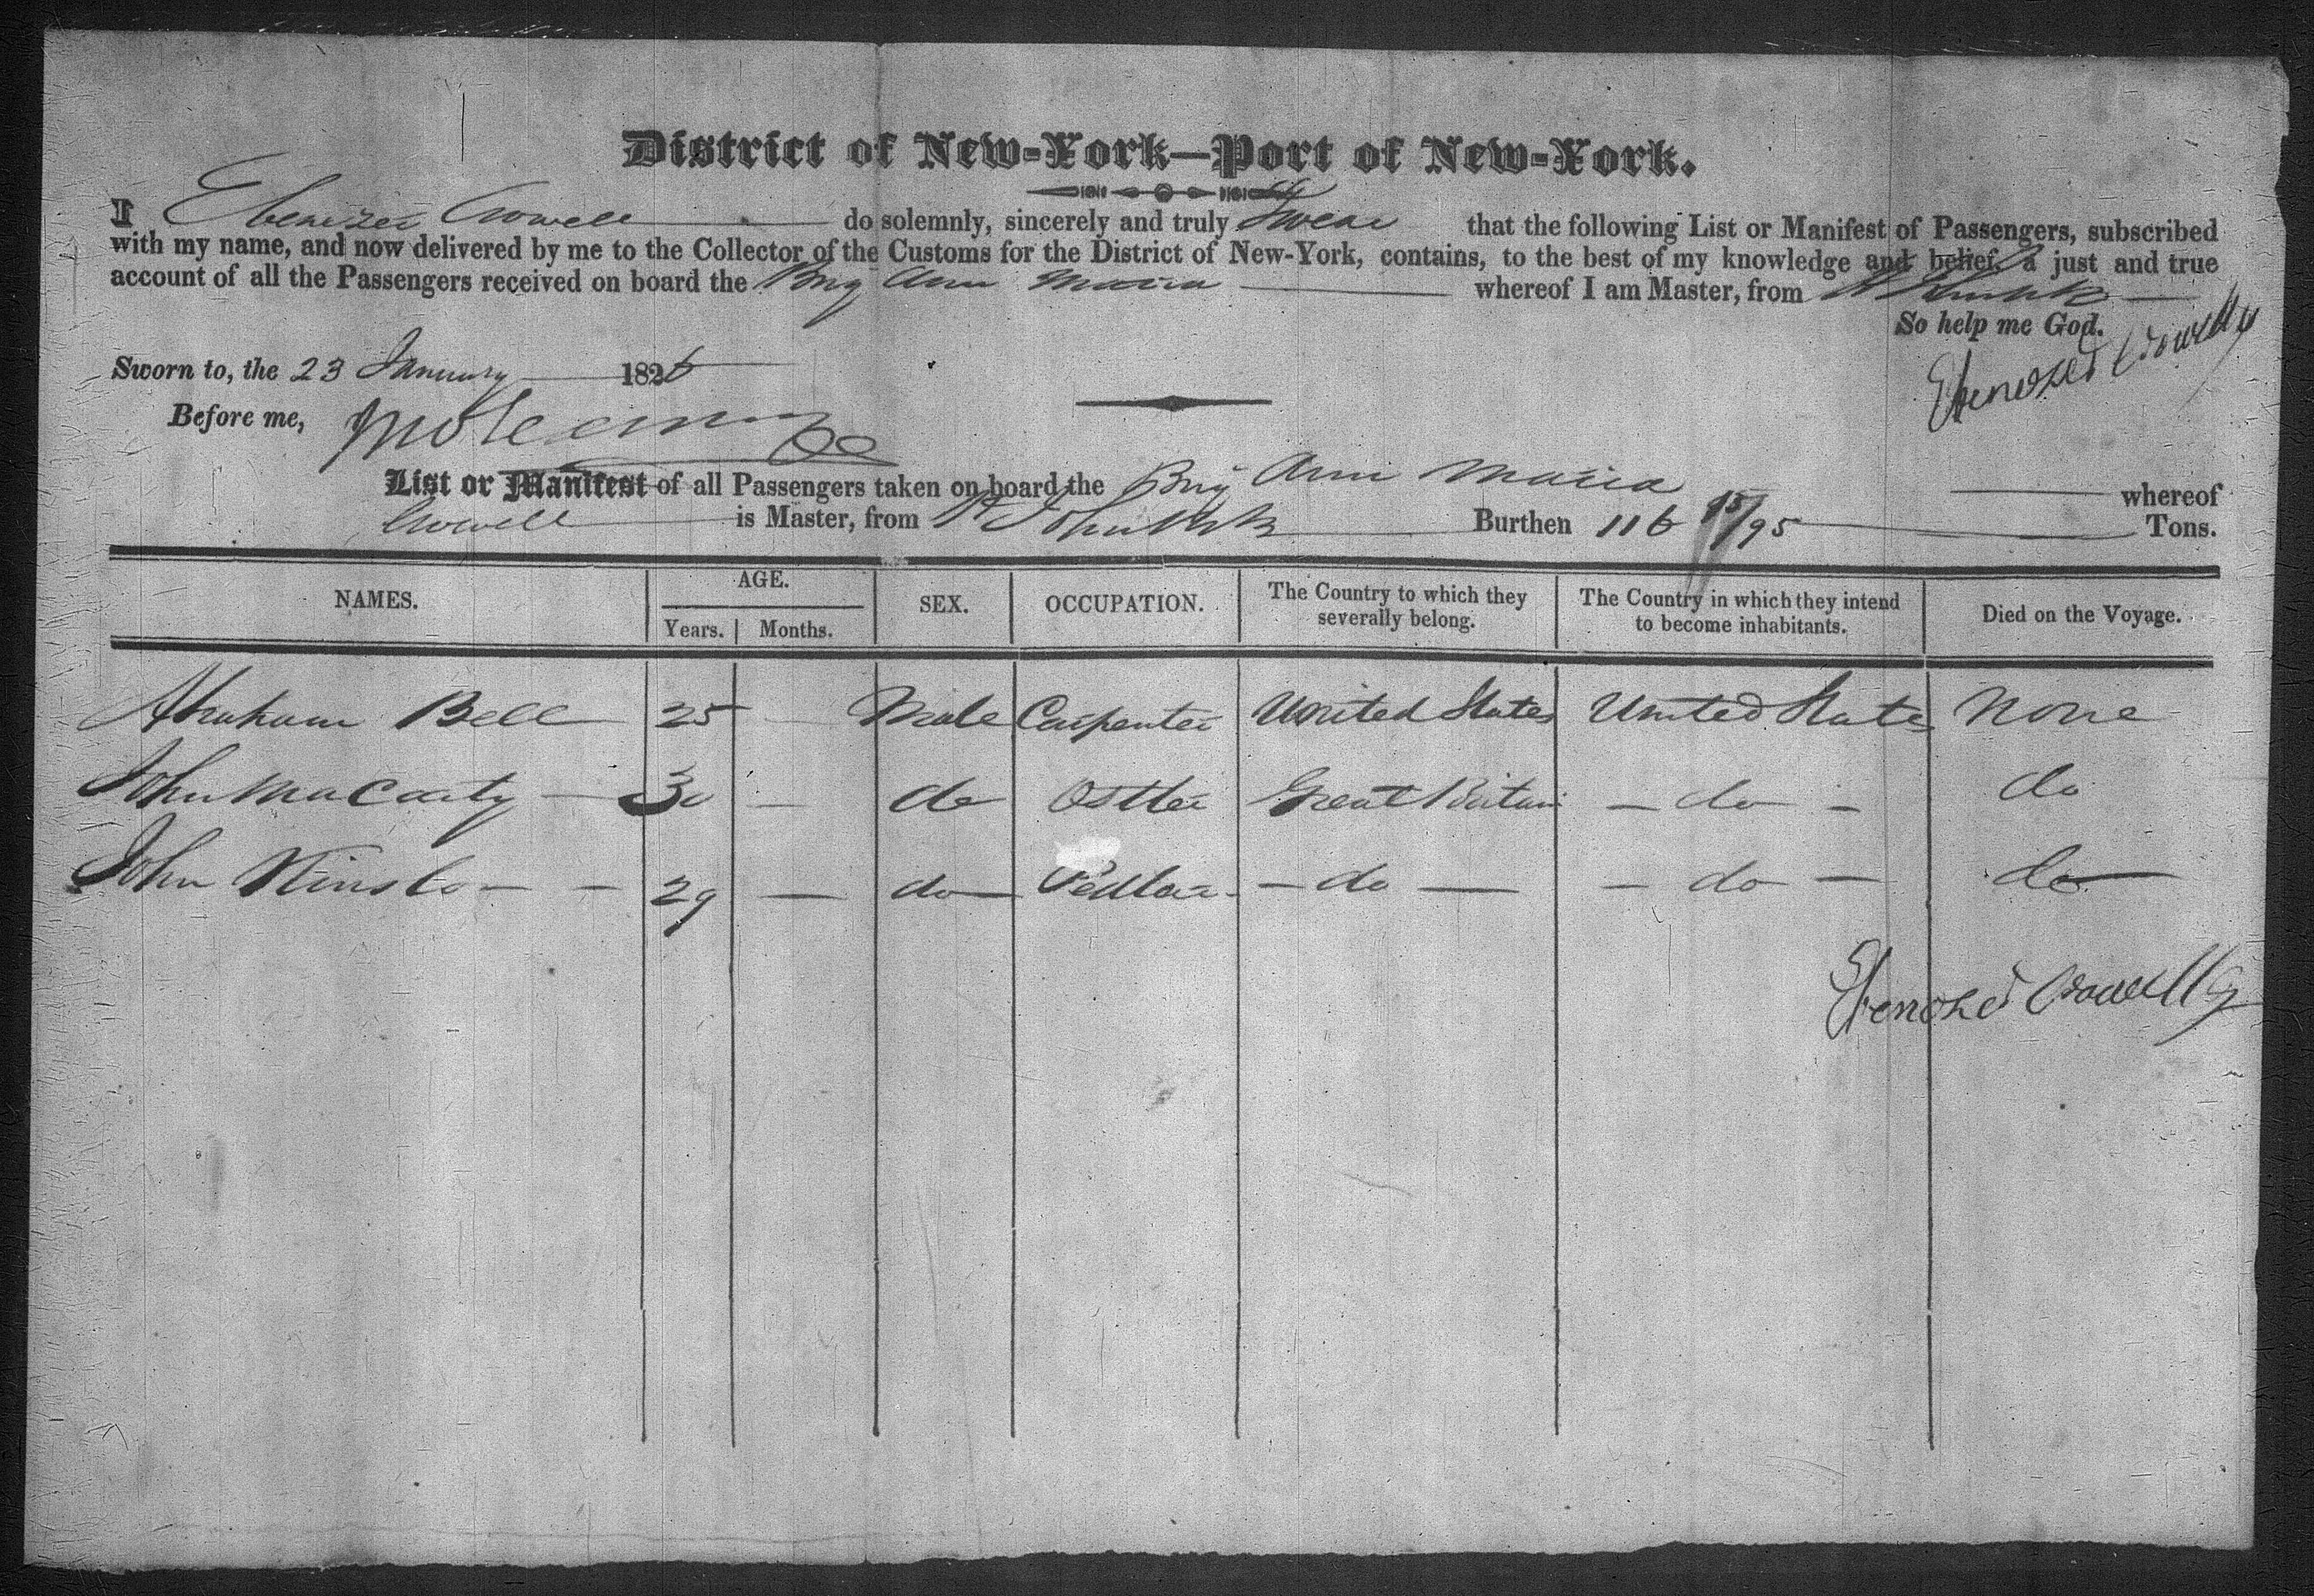 District of New-York—Port of New-York.
I Ebenezer Crowell do solemnly, sincerely and truly Swear that the following List or Manifest of Passengers, subscribed
with my name, and now delivered by me to the Collector of the Customs for the District of New-York, contains, to the best of my knowledge and belief, a just and true
account of all the Passengers received on board the Brig Ann Maria whereof I am Master, from
So help me God.
Ebenezer Crowell
Sworn to, the 23 January 1826
Before me,
List or Manifest of all Passengers taken on board the Brig Ann Maria whereof
Crowell is Master, from St Johns Burthen 116 15/95 Tons.
NAMES. AGE. SEX. OCCUPATION. The Country to which they severally belong. The Country in which they intend to become inhabitants. Died on the Voyage.
Years. Months.
Abraham Bell 25 — Male Carpenter United States United States None
John MaCarty 30 — do Ostler Great Britain — do — do
John 29 — do Pedlar — do — — do — do
Ebenezer Crowell